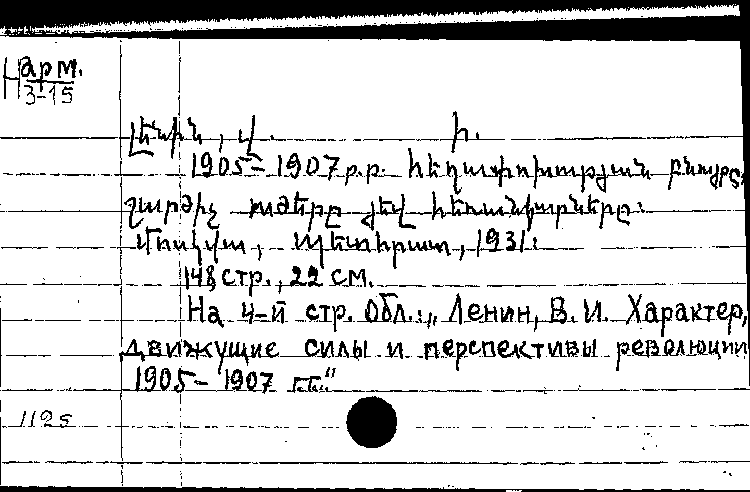 Нарм.
3-15
Լենին, Վ. Ի.
1905–1907 թ.թ. հեղափոխության բնույթը,
շարժիչ ուժերը յեվ հեռանկարները։
Մոսկվա, Պետհրատ, 1931։
148 стр., 22 см.
На 4-й стр. обл.: „Ленин, В. И. Характер,
движущие силы и перспективы революции
1905–1907 гг.“
1125